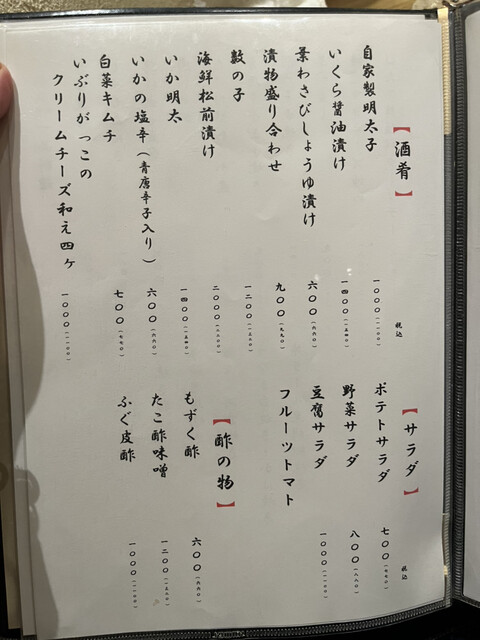 【酒肴】 税込
自家製明太子 一〇〇〇(一一〇〇)
いくら醤油漬け 一四〇〇(一五四〇)
葉わさびしょうゆ漬け 六〇〇(六六〇)
漬物盛り合わせ 九〇〇(九九〇)
数の子 一二〇〇(一三二〇)
海鮮松前漬け 二〇〇〇(二二〇〇)
いか明太 一四〇〇(一五四〇)
いかの塩辛(青唐辛子入り) 六〇〇(六六〇)
白菜キムチ 七〇〇(七七〇)
いぶりがっこの
クリームチーズ和え四ヶ 一〇〇〇(一一〇〇)
【サラダ】 税込
ポテトサラダ 七〇〇(七七〇)
野菜サラダ 八〇〇(八八〇)
豆腐サラダ 一〇〇〇(一一〇〇)
フルーツトマト
【酢の物】
もずく酢 六〇〇(六六〇)
たこ酢味噌 一二〇〇(一三二〇)
ふぐ皮酢 一〇〇〇(一一〇〇)